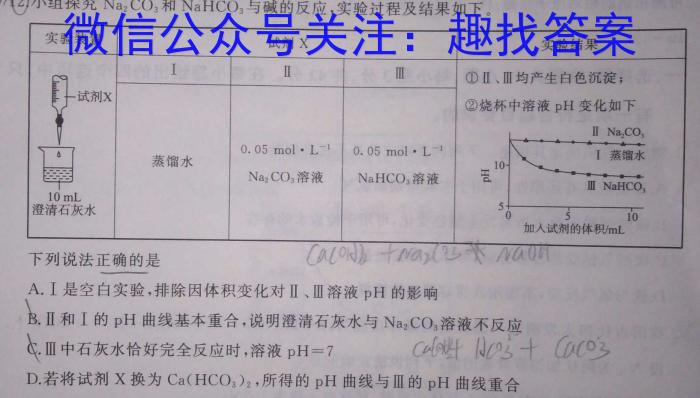 (2)小组探究 Na₂CO₃和 NaHCO₃与碱的反应,实验过程及结果如下
微信公众号关注：趣找答案
试剂 X
实验结果
Ⅰ
Ⅱ
Ⅲ
试剂X
10 mL
澄清石灰水
蒸馏水
0.05 mol·L⁻¹
Na₂CO₃溶液
0.05 mol·L⁻¹
NaHCO₃溶液
①Ⅱ、Ⅲ均产生白色沉淀;
②烧杯中溶液 pH 变化如下
Ⅱ Na₂CO₃
Ⅰ 蒸馏水
Ⅲ NaHCO₃
pH
10
5
0 5 10
加入试剂的体积/mL
下列说法正确的是
A.Ⅰ是空白实验,排除因体积变化对Ⅱ、Ⅲ溶液 pH 的影响
B.Ⅱ和Ⅰ的 pH 曲线基本重合,说明澄清石灰水与 Na₂CO₃溶液不反应
C.Ⅲ中石灰水恰好完全反应时,溶液 pH=7
D.若将试剂 X 换为 Ca(HCO₃)₂,所得的 pH 曲线与Ⅲ的 pH 曲线重合